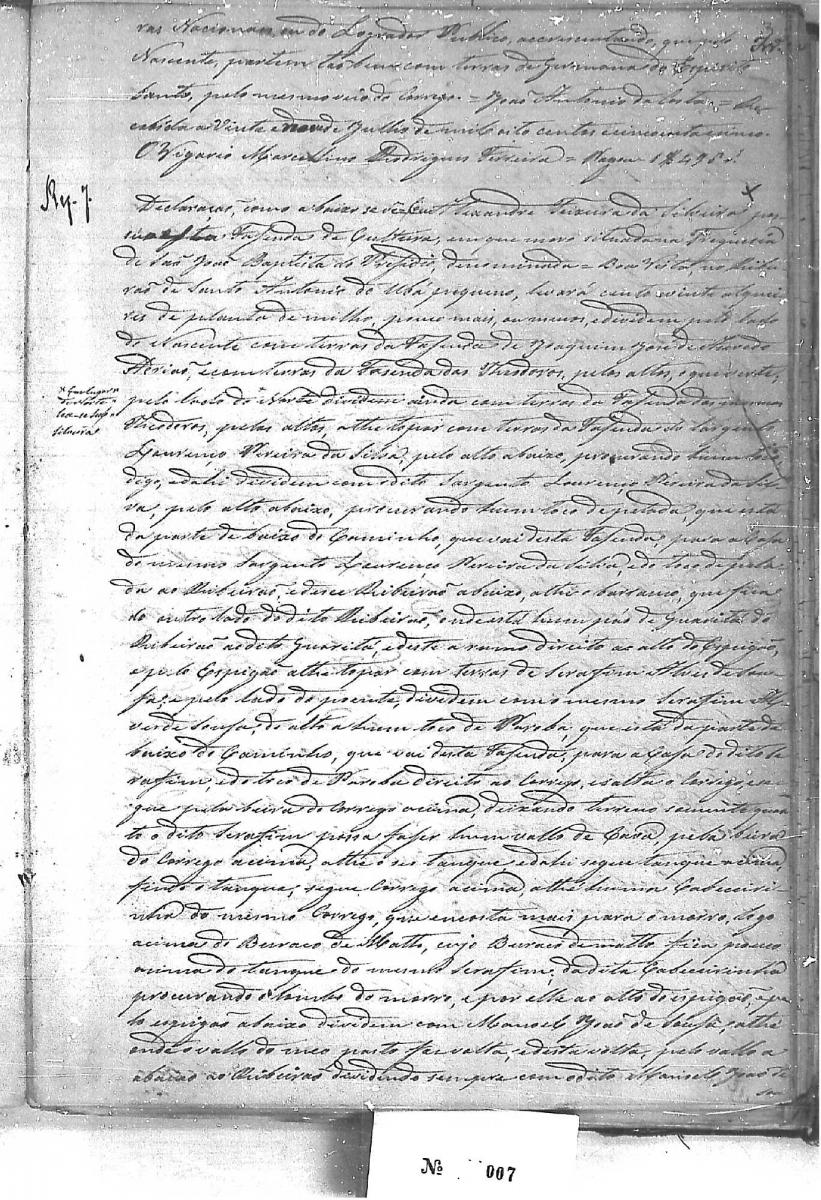 ras Nacionaes ou do Logrador Publico, accrescentando, que pelo
Nascente, partem tão bem com terras de Germana do Espirito
Santo, pelo mesmo veio do Corrego. = João Antonio da Costa = Re
cebida a Vinte e nove de Julho de mil oito centos e cincoenta e cinco.
O Vigario Marcelino Rodrigues Ferreira = Pagou 1$495 rs.
Rg. 7.
Declaração, como a baixo se vê = Eu Alexandre Teixeira da Silveira pos
suo esta Fasenda de Cultura, em que moro situada na Freguesia
de São João Baptista do Presidio, denominada = Boa Vista, no Ribei
rão de Santo Antonio do Ubá pequeno, levará cento e vinte alquei
res de planta de milho, pouco mais, ou menos, e dividem pelo lado
do Nascente com terras da Fasenda de Joaquim José de Azevedo
e com terras da Fasenda dos Theodoros, pelos altos, o que verte,
pelo lado do Norte dividem ainda com terras da Fasenda dos mesmos
Theodoros, pelos altos, athe topar com terras da Fasenda do Sargento
Lourenço Pereira da Silva, pelo alto abaixo, procurando hum
digo, e dahi dividem com o dito Sargento Lourenço Pereira da Sil
va, pelo alto abaixo, procurando hum toco de peloda, que está
da parte de baixo do Caminho, que vai desta Fasenda, para a Casa
do mesmo Sargento Lourenço Pereira da Silva, e do toco de pelo
da ao Ribeirão, e desce Ribeirão abaixo, athe o barranco, que fica
do outro lado do dito Ribeirão, onde está hum pião de Guarita do
Ribeirão ao dito Guaritá, e deste a rumo direito ao alto do Espigão,
e pelo Espigão athe topar com terras de Serafim Alves de Sou
sa; e pelo lado do poente, dividem com o mesmo Serafim Al
ves de Sousa, do alto a hum toco de Paroba, que está da parte de
baixo do Caminho, que vai desta Fasenda, para a Casa do dito Se
rafim, e do toco de Paroba direito ao Corrego, e salta o Corrego, e se
gue pela beira do Corrego acima, deixando terreno somente quan
to o dito Serafim possa faser hum vallo de Cava, pela beira
do Corrego acima, athe o seu tanque e dahi segue tanque acima,
findo o tanque, segue Corrego acima, athe huma Cabeceiri
nha do mesmo Corrego, que encosta mais para o morro, logo
acima do Buraco de Matto, cujo Buraco de matto fica pouco
acima do tanque do mesmo Serafim, da dita Cabeceirinha
procurando o limbo do morro, e por elle ao alto do espigão, e pe
lo espigão abaixo dividem com Manoel João de Sousa, athe
onde o vallo do meo pasto faz volta, e desta volta, pelo vallo a
abaixo ao Ribeirão dividindo sempre com o dito Manoel João de
x Em lugar
Silveira
Nº 007